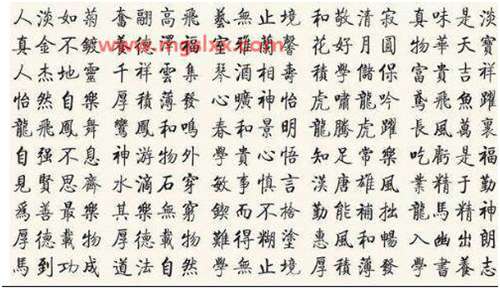 人淡如菊 奮翮高飛 藝無止境 和敬清寂 真味是淡
真金不鍍 養德 福 室雅蘭馨 花好月圓 物華天寶
www.mgalxx.com
人杰地靈 千祥雲集 琴酒相壽 積學儲保 富貴吉祥
怡然自樂 厚積薄發 心曠神怡 虎嘯龍吟 鳶飛魚躍
龍飛鳳舞 鸞鳳和鳴 春和景明 龍騰虎躍 長風萬裏
自强不息 神游物外 學貴心悟 知足常樂 吃虧是福
見賢思齊 水滴石穿 敏事慎言 漢唐雄風 業精于勤
爲善最樂 其樂無窮 鍥而不捨 勤能補拙 龍馬精神
厚德載物 厚德載物 難得糊塗 惠風和暢 入幽出朗
馬到功成 道法自然 學無止境 厚積薄發 學書養志